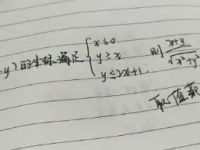 y) 的坐标满足 { x≤0
y≥x
y≤2x+1
则 x+y / √x²+y²
取值范